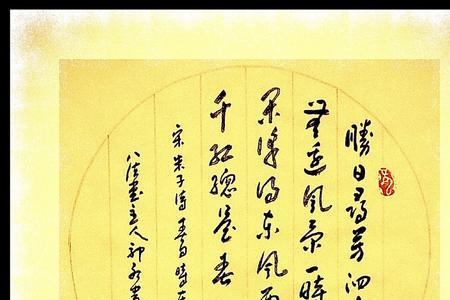 勝日尋芳泗
無邊風景一時
閒識得東風面
千紅總是春
宋朱子詩春日時在
主人